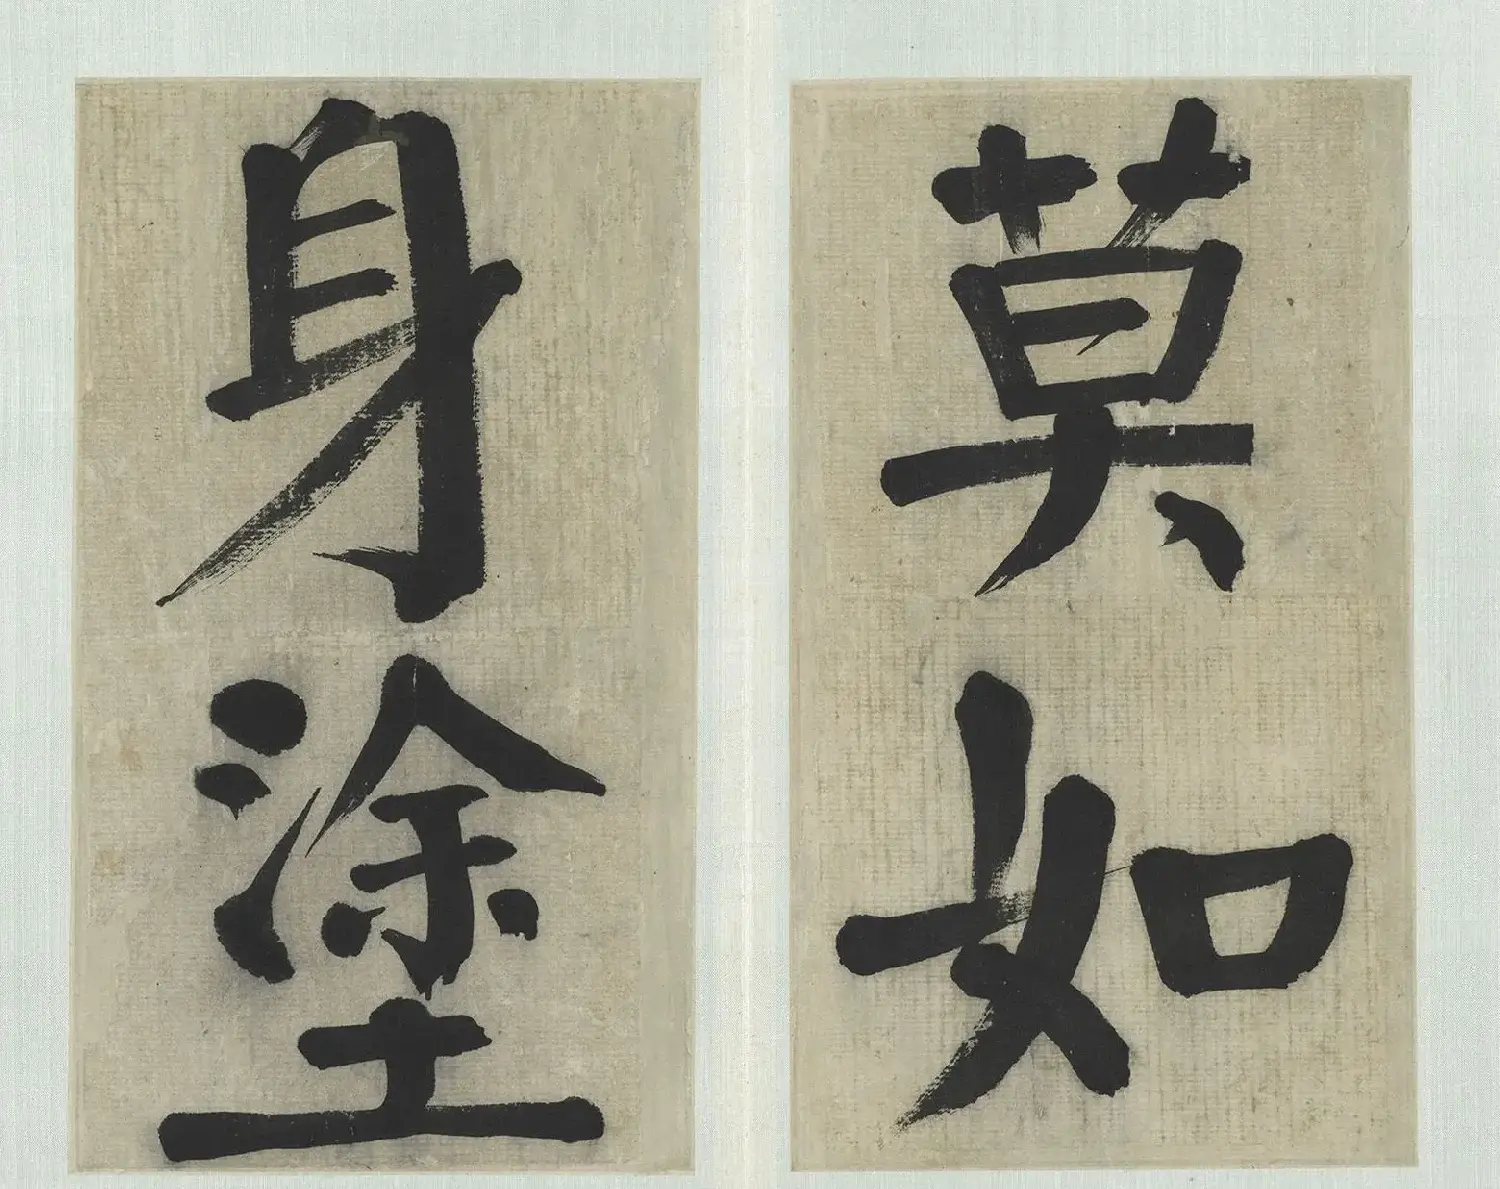 莫如
身塗